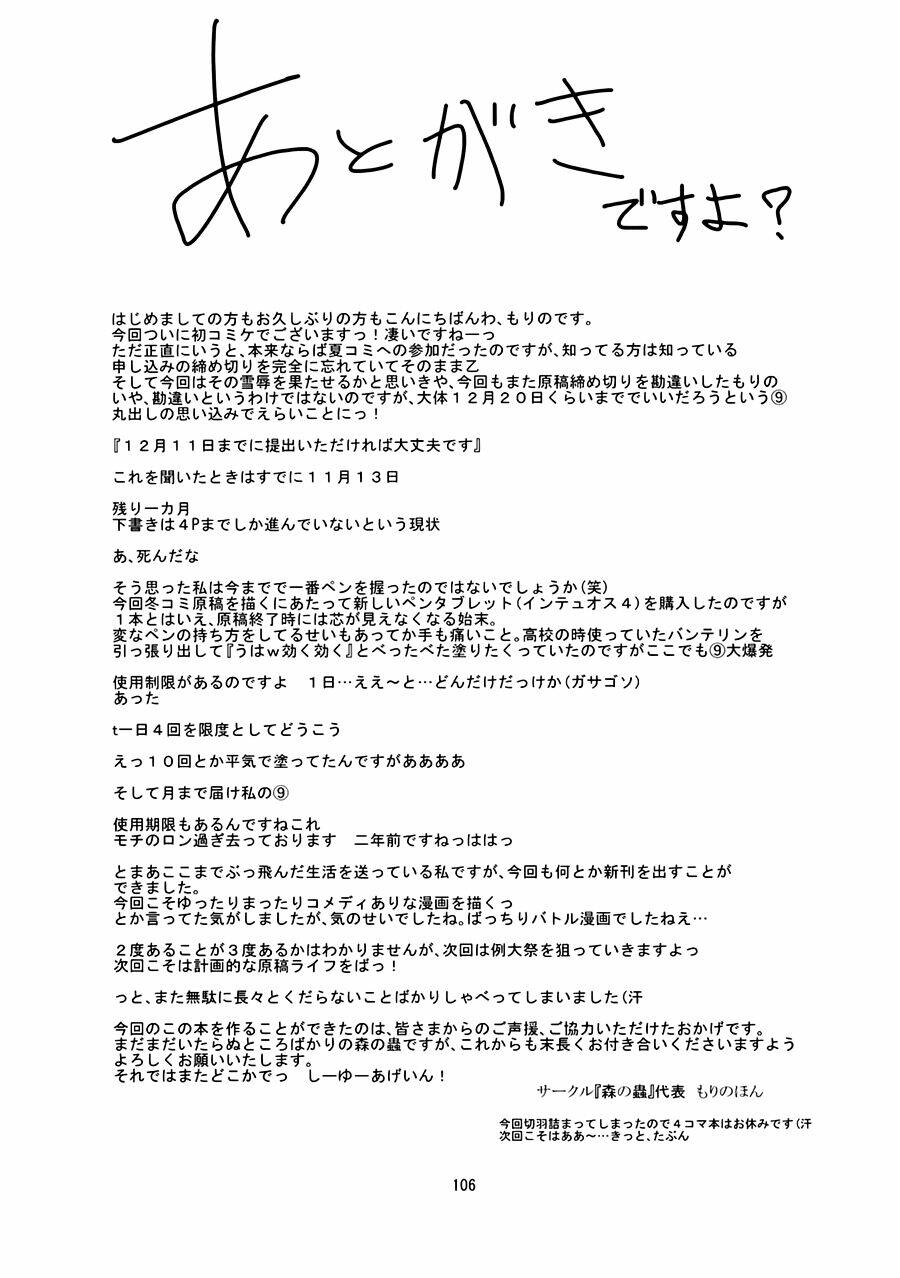 あとがき
ですよ?
はじめましての方もお久しぶりの方もこんにちばんわ、もりのです。
今回ついに初コミケでございますっ！凄いですねーっ
ただ正直にいうと、本来ならば夏コミへの参加だったのですが、知ってる方は知っている
申し込みの締め切りを完全に忘れていてそのまま乙
そして今回はその雪辱を果たせるかと思いきや、今回もまた原稿締め切りを勘違いしたもりの
いや、勘違いというわけではないのですが、大体１２月２０日くらいまででいいだろうという⑨
丸出しの思い込みでえらいことにっ！
『１２月１１日までに提出いただければ大丈夫です』
これを聞いたときはすでに１１月１３日
残り一カ月
下書きは４Pまでしか進んでいないという現状
あ、死んだな
そう思った私は今までで一番ペンを握ったのではないでしょうか（笑）
今回冬コミ原稿を描くにあたって新しいペンタブレット（インテュオス４）を購入したのですが
１本とはいえ、原稿終了時には芯が見えなくなる始末。
変なペンの持ち方をしてるせいもあってか手も痛いこと。高校の時使っていたバンテリンを
引っ張り出して『うはｗ効く効く』とべったべた塗りたくっていたのですがここでも⑨大爆発
使用制限があるのですよ　１日…ええ～と…どんだけだっけか（ガサゴソ）
あった
t一日４回を限度としてどうこう
えっ１０回とか平気で塗ってたんですがああああ
そして月まで届け私の⑨
使用期限もあるんですねこれ
モチのロン過ぎ去っております　二年前ですねっははっ
とまあここまでぶっ飛んだ生活を送っている私ですが、今回も何とか新刊を出すことが
できました。
今回こそゆったりまったりコメディありな漫画を描くっ
とか言ってた気がしましたが、気のせいでしたね。ばっちりバトル漫画でしたねえ…
２度あることが３度あるかはわかりませんが、次回は例大祭を狙っていきますよっ
次回こそは計画的な原稿ライフをばっ！
っと、また無駄に長々とくだらないことばかりしゃべってしまいました（汗
今回のこの本を作ることができたのは、皆さまからのご声援、ご協力いただけたおかげです。
まだまだいたらぬところばかりの森の蟲ですが、これからも末長くお付き合いくださいますよう
よろしくお願いいたします。
それではまたどこかでっ　しーゆーあげいん！
サークル『森の蟲』代表　もりのほん
今回切羽詰まってしまったので４コマ本はお休みです（汗
次回こそはああ～…きっと、たぶん
106